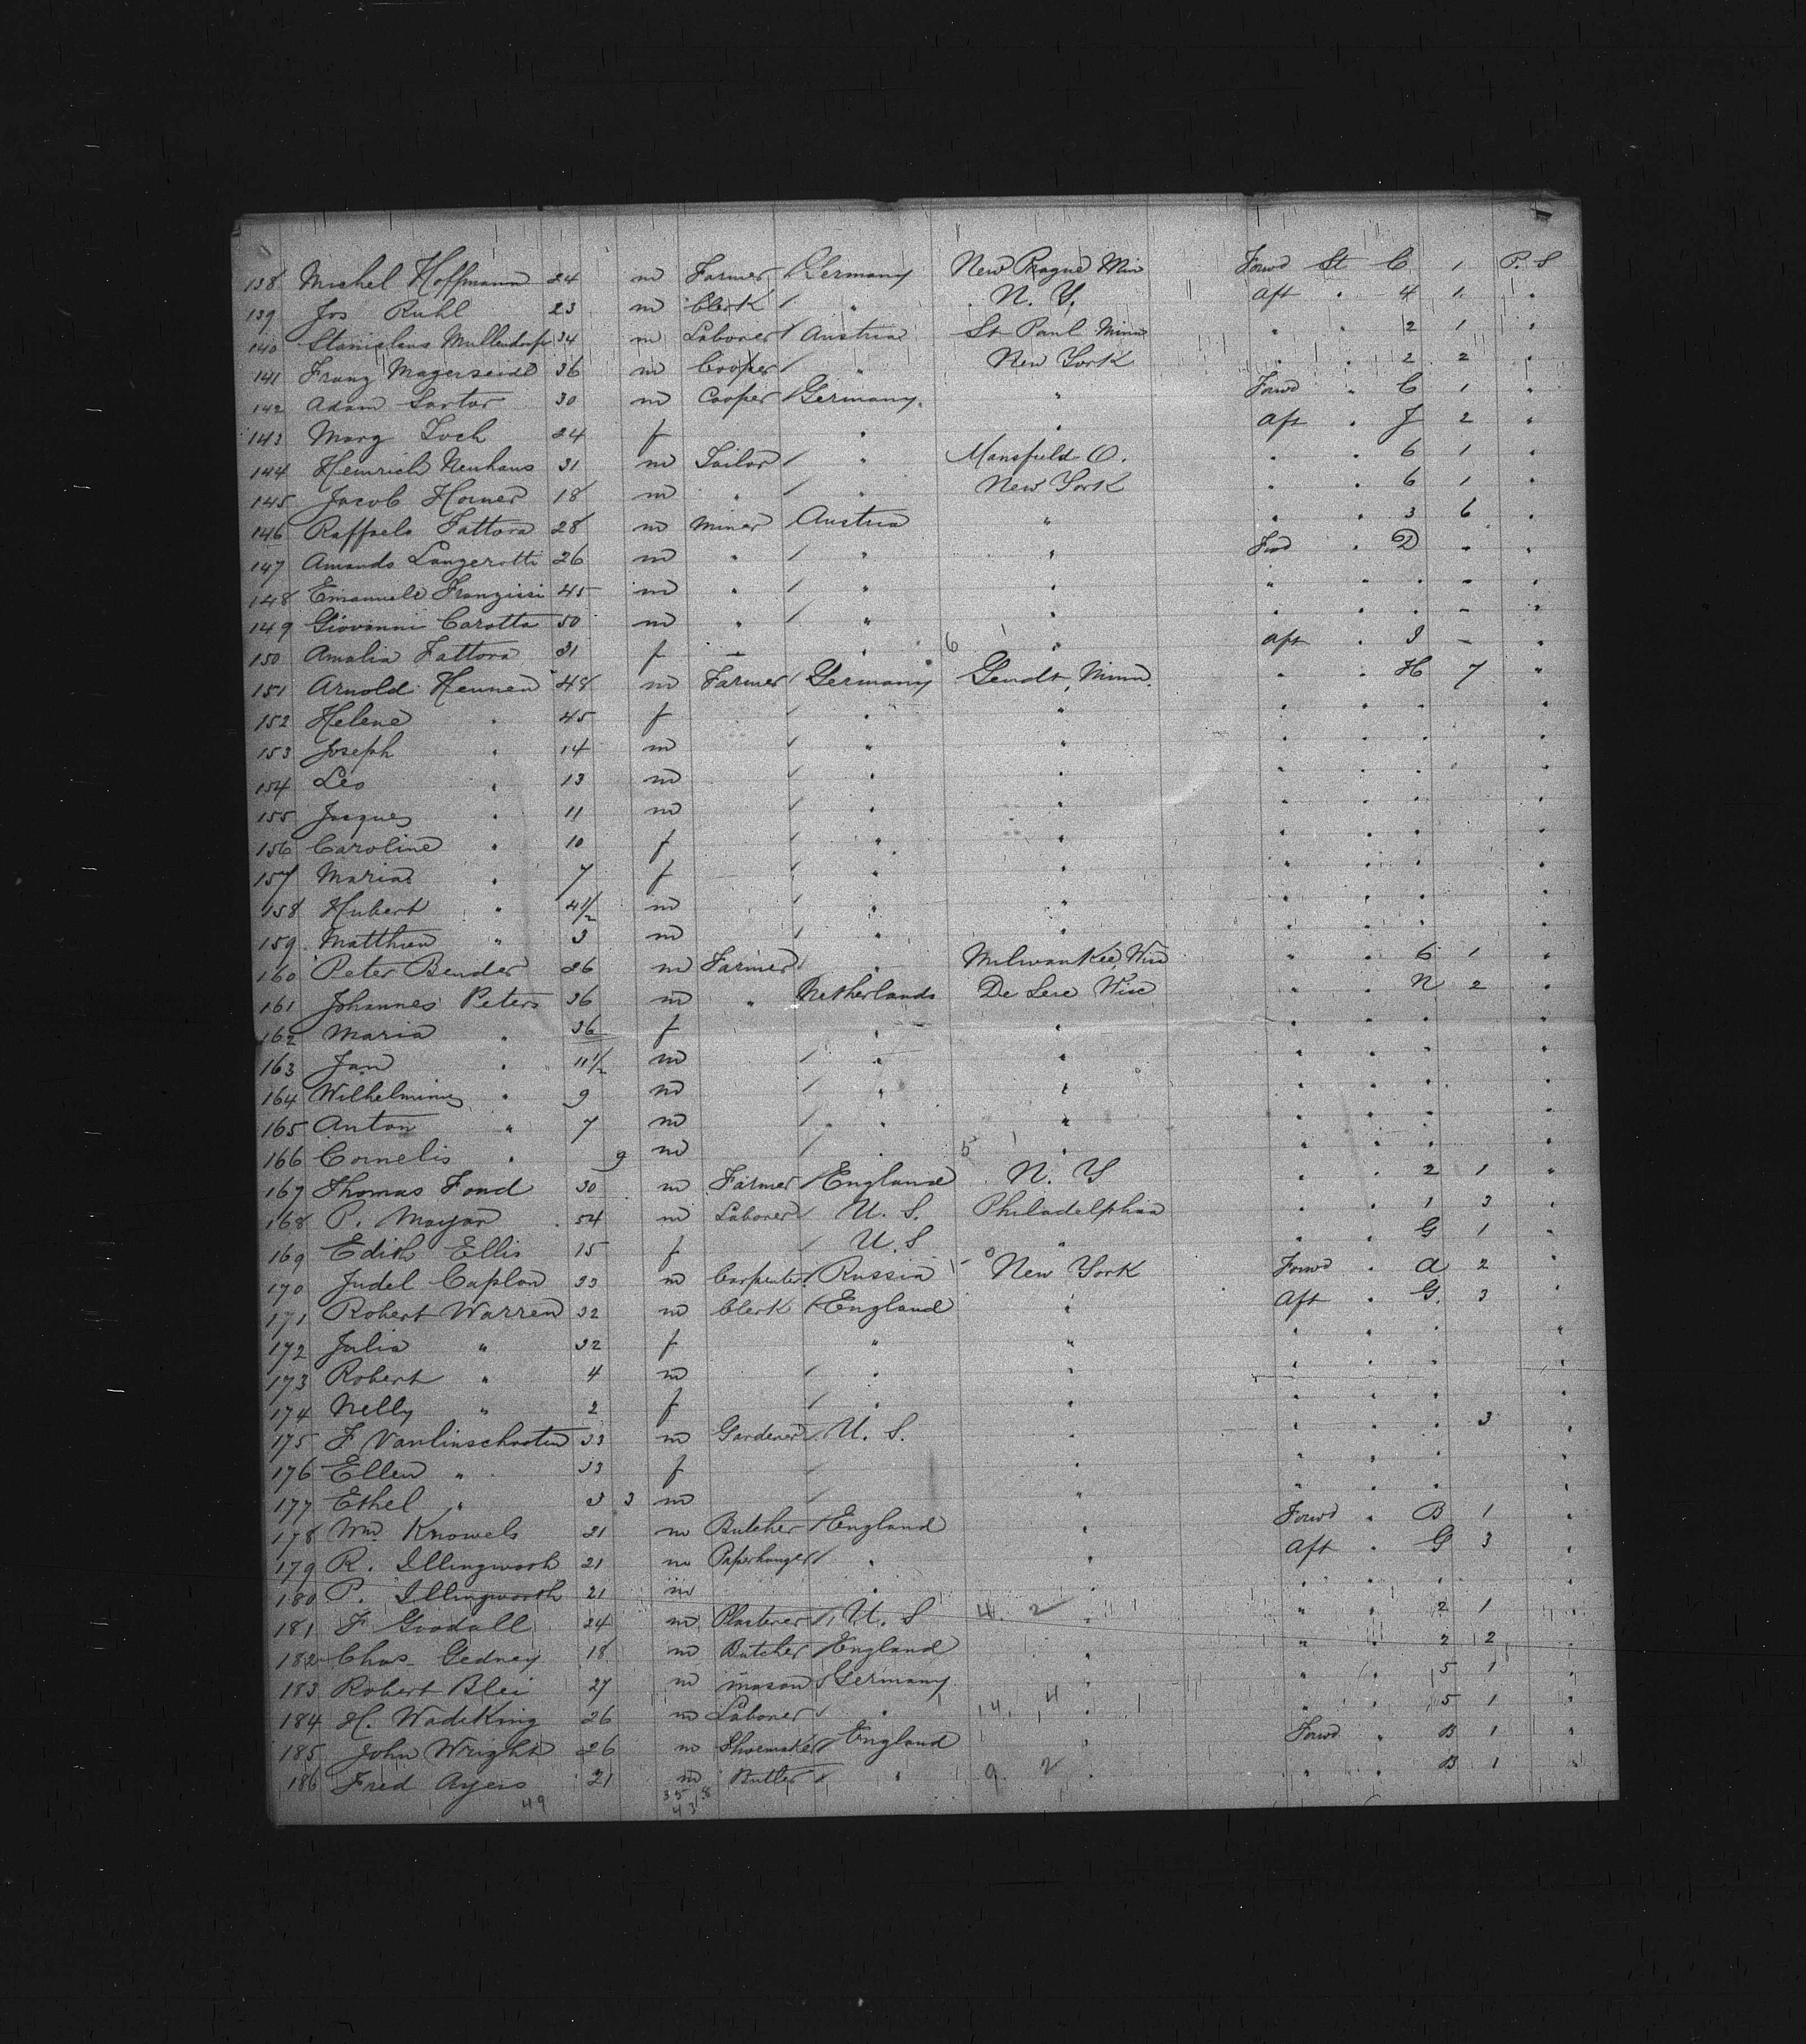 138 Michel Hoffmann 24 m Farmer Germany New Prague Min Forwd St C 1 P. S
139 Jos Ruhl 23 m Clerk " N. Y. aft " 4 1 "
140 Stanislaus Mullendorf 34 m Laborer Austria St Paul Minn " " 2 1 "
141 Franz Magerseidl 36 m Cooper " New York " " 2 2 "
142 Adam Sartor 30 m Cooper Germany " Forwd " C 1 "
143 Marg Loch 24 f " " aft " J 2 "
144 Heinrich Neuhaus 31 m Tailor " Mansfield O. " " 6 1 "
145 Jacob Horner 18 m " " New York " " 6 1 "
146 Raffaele Fattora 28 m Miner Austria " " " 3 6 "
147 Amando Langerotti 26 m " " " Fwd " D - "
148 Emanuele 45 m " " " " " " - "
149 Giovanni Carotta 50 m " " " " " " - "
150 Amalia Fattora 31 f - " 6 " aft " I - "
151 Arnold Hennen 48 m Farmer Germany Gendt, Minn. " " H 7 "
152 Helene " 45 f " " " " " "
153 Joseph " 14 m " " " " " "
154 Leo " 13 m " " " " " "
155 Jacques " 11 m " " " " " "
156 Caroline " 10 f " " " " " "
157 Maria " 7 f " " " " " "
158 Hubert " 4 1/2 m " " " " " "
159 Matthieu " 3 m " " " " " "
160 Peter Bender 26 m Farmer " Milwaukee, Wis " " 6 1 "
161 Johannes Peters 36 m " Netherlands De Pere Wisc " " N 2 "
162 Maria " 36 f " " " " " "
163 Jan " 11 1/2 m " " " " " "
164 Wilhelmina " 9 m " " " " " "
165 Anton " 7 m " " " " " "
166 Cornelis " 9 m 5 " " " " "
167 Thomas Foad 30 m Farmer England N. Y " " 2 1 "
168 P. Mayar 54 m Laborer U. S. Philadelphia " " 1 3 "
169 Edith Ellis 15 f U. S " " " G 1 "
170 Judel Caplan 33 m Carpenter Russia New York Forwd " A 2 "
171 Robert Warren 32 m Clerk England " Aft " G. 3 "
172 Julia " 32 f " " " " " "
173 Robert " 4 m " " " " " "
174 Nelly " 2 f " " " " " "
175 F Vanlinschooten 33 m Gardener U. S. " " " " 3 "
176 Ellen " 33 f " " " " "
177 Ethel " 3 3 m " " " " "
178 Wm Knowels 21 m Butcher England " Forwd " B 1 "
179 R. Illingworth 21 m Paperhanger " " Aft " G 3 "
180 P. Illingworth 21 m " " " " " "
181 F Goodall 24 m Plasterer U. S 4. 2 " " " 2 1 "
182 Chas Gedney 18 m Butcher England " " " 2 2 "
183 Robert Blei 27 m mason Germany " " " 5 1 "
184 H. Wadeking 26 m Laborer " 14. 4 " " " 5 1 "
185 John Wright 26 m Shoemaker England " Forwd " B 1 "
186 Fred Ayers 21 m Butler " 9. 2 " " " B 1 "
49 35 8
43